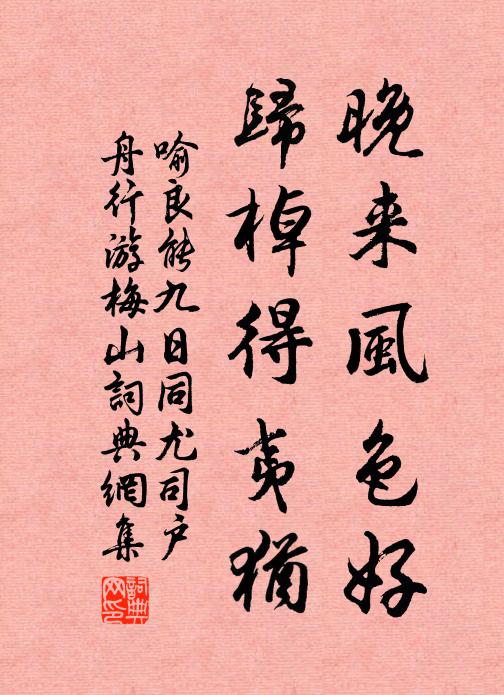 晚来風色好
歸棹得夷猶
喻良能九日同尤司户
舟行游梅山詞典網集
詞典
网印